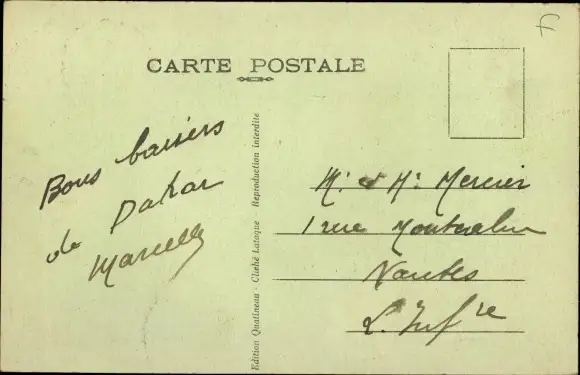 CARTE POSTALE
Bons baisers
de Dakar
Marcelle
Edition Quatineau - Cliché Lataque Reproduction interdite
Mr et Me Mercier
1 rue
Nantes
L. Infre